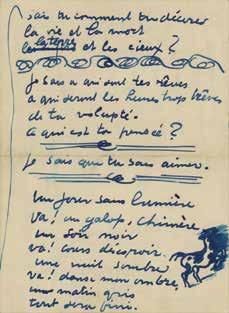 sais tu comment tu découvres
la vie et la mort
la terre
et les cieux ?
Je sais a qui sont tes rêves
a qui seront les heures trop brèves
de ta volupté.
a qui est ta pensée ?
Je sais que tu sais aimer.
Un jour sans lumière
va ! au galop, chimère
un soir noir
va ! cours désespoir.
une nuit sombre
va ! danse mon ombre,
un matin gris
tout sera fini.